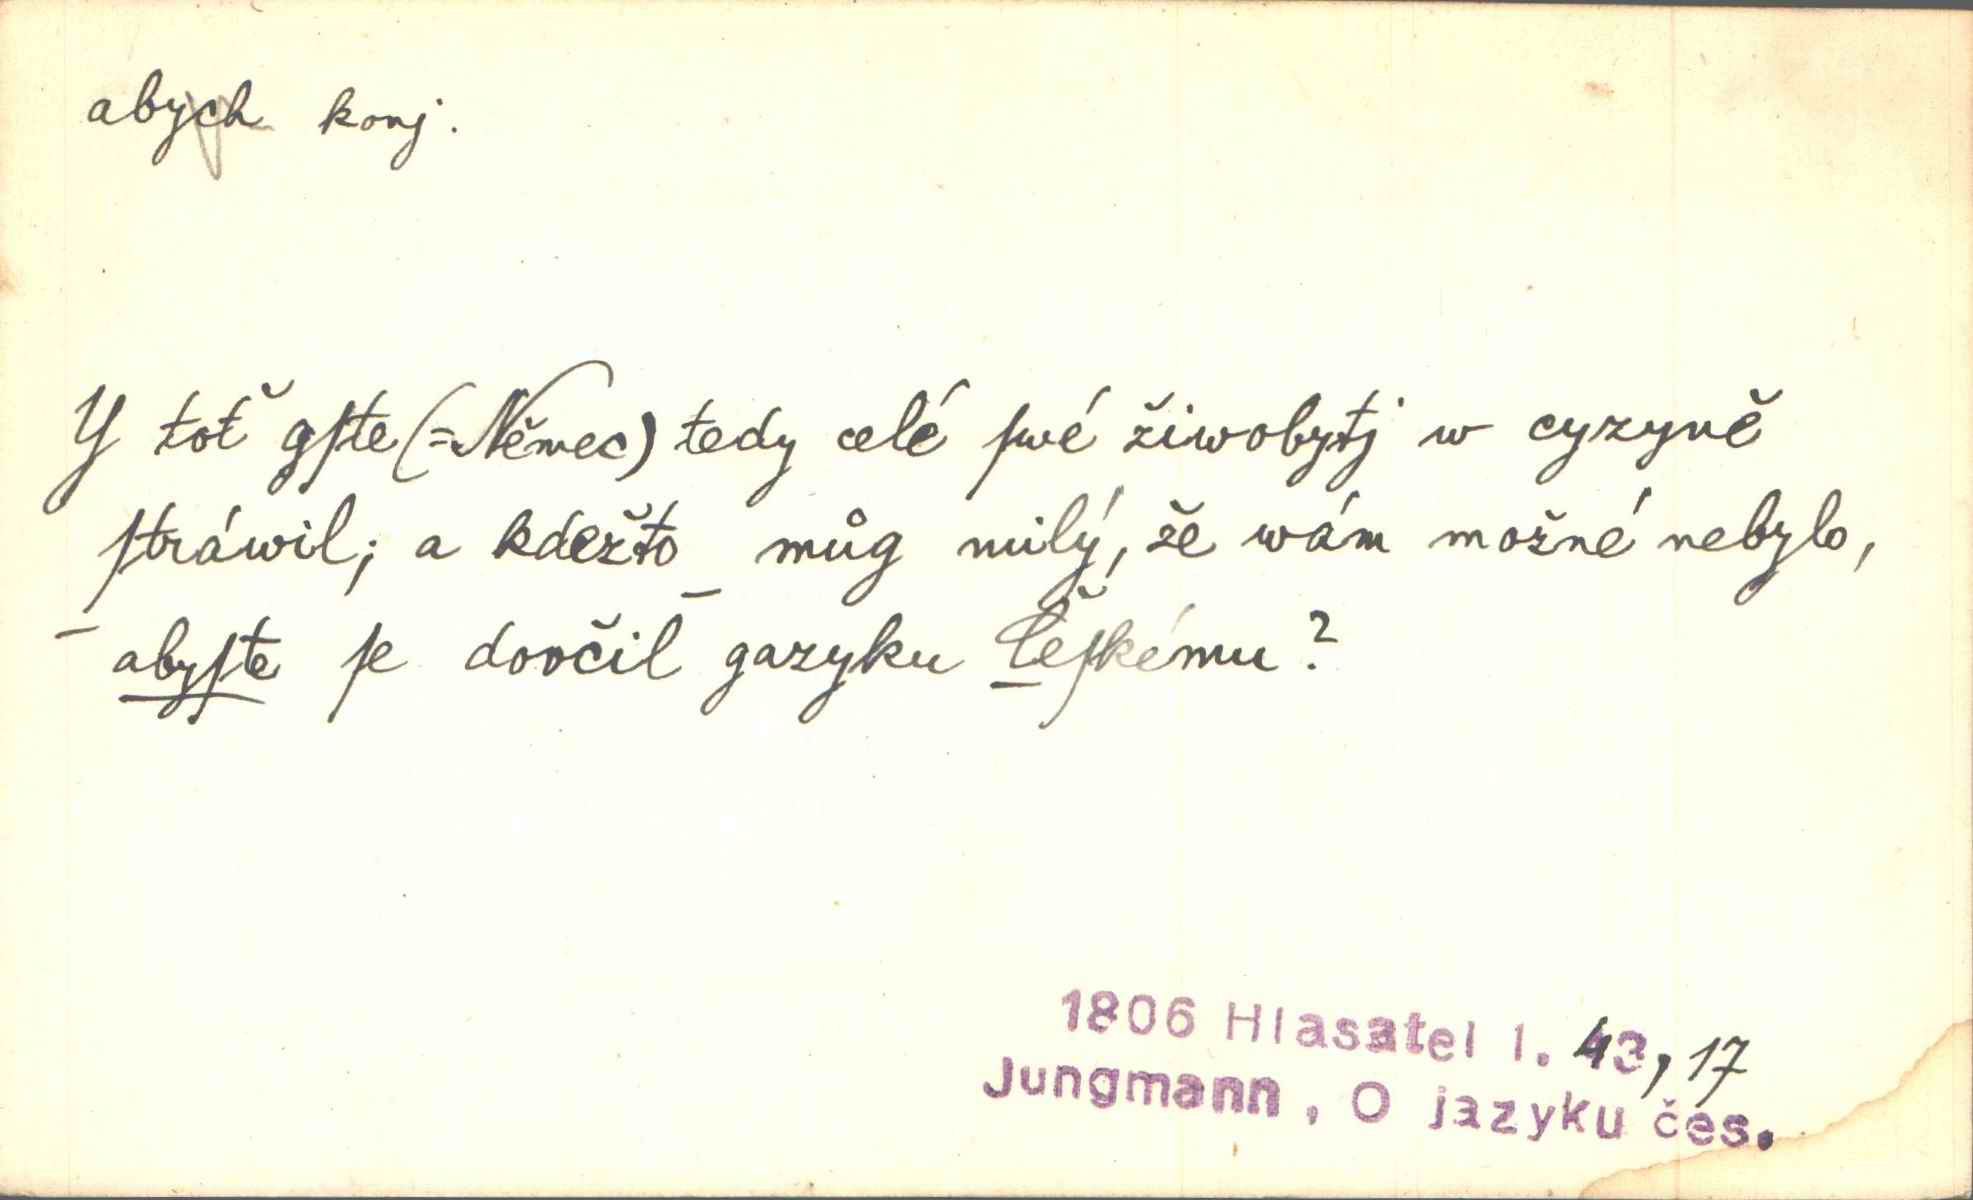 abych konj.
Y toť gſte (=Němec) tedy celé ſwé žiwobytj w cyzyně
ſtráwil; a kdežto můg milý, že wám možné nebylo,
abyſte ſe dovčil gazyku Čeſkému?
1806 Hlasatel I. 43, 17
Jungmann, O jazyku čes.